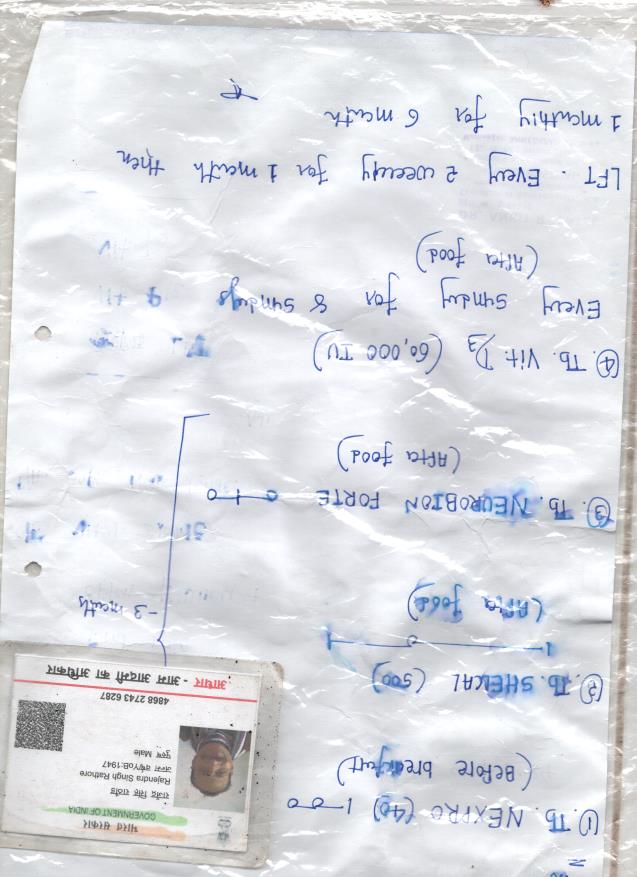 ① . Tb. NEXPRO (40) 1-0-0
(Before breakfast)
② . Tb. SHELCAL (500)
1-0-1
(After food)
③ . Tb. NEUROBION FORTE 0-1-0
(After food)
- 3 months
④ . Tb. Vit. D3 (60,000 IU)
Every sunday for 8 sundays
(After food)
LFT . Every 2 weekly for 1 month then
1 monthly for 6 month
भारत सरकार
GOVERNMENT OF INDIA
राजेंद्र सिंह राठौर
Rajendra Singh Rathore
जन्म वर्ष/YoB:1947
पुरुष Male
4868 2743 6287
आधार - आम आदमी का अधिकार